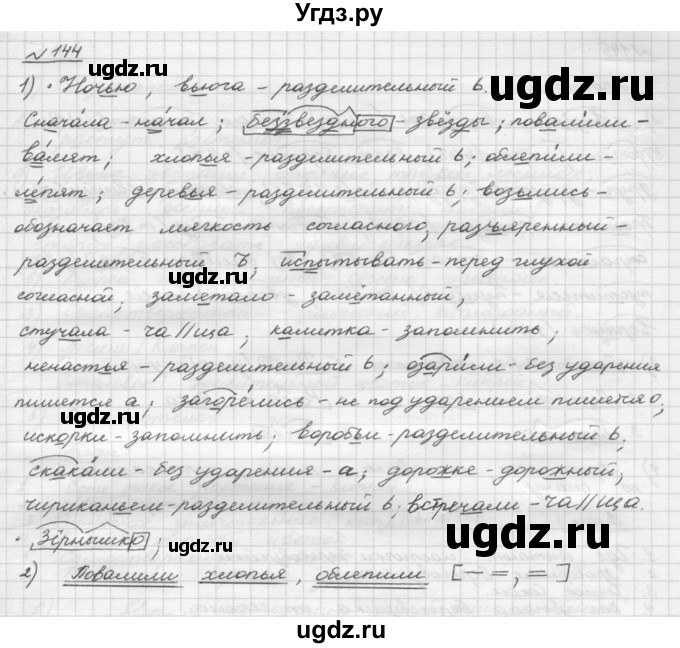 Угдз.ру
№ 144
1) · Ночью, вьюга - разделительный ь.
Снача́ла - на́чал; беззвездного - звёзды; повали́ли -
ва́лят; хлопья - разделительный ь; облепи́ли -
ле́пят; деревья - разделительный ь; возьмись -
обозначает мягкость согласного, разъяренный -
разделительный Ъ; испытывать - перед глухой
согласной; заметало - замётанный,
стучала - ча//ща; калитка - запомнить;
ненастья - разделительный ь; озари́ли - без ударения
пишется а; загоре́лись - не под ударением пишется о;
искорки - запомнить; воробьи - разделительный ь,
скака́ли - без ударения - а; дорожке - дорожный,
чириканьем - разделительный ь; встречали - ча//ща.
· Зёрнышко;
2) Повалили хлопья, облепили [- =, =]
ugdz.ru
ugdz.ru
ugdz.ru
ugdz.ru
ugdz.ru
ugdz.ru
ugdz.ru
ugdz.ru